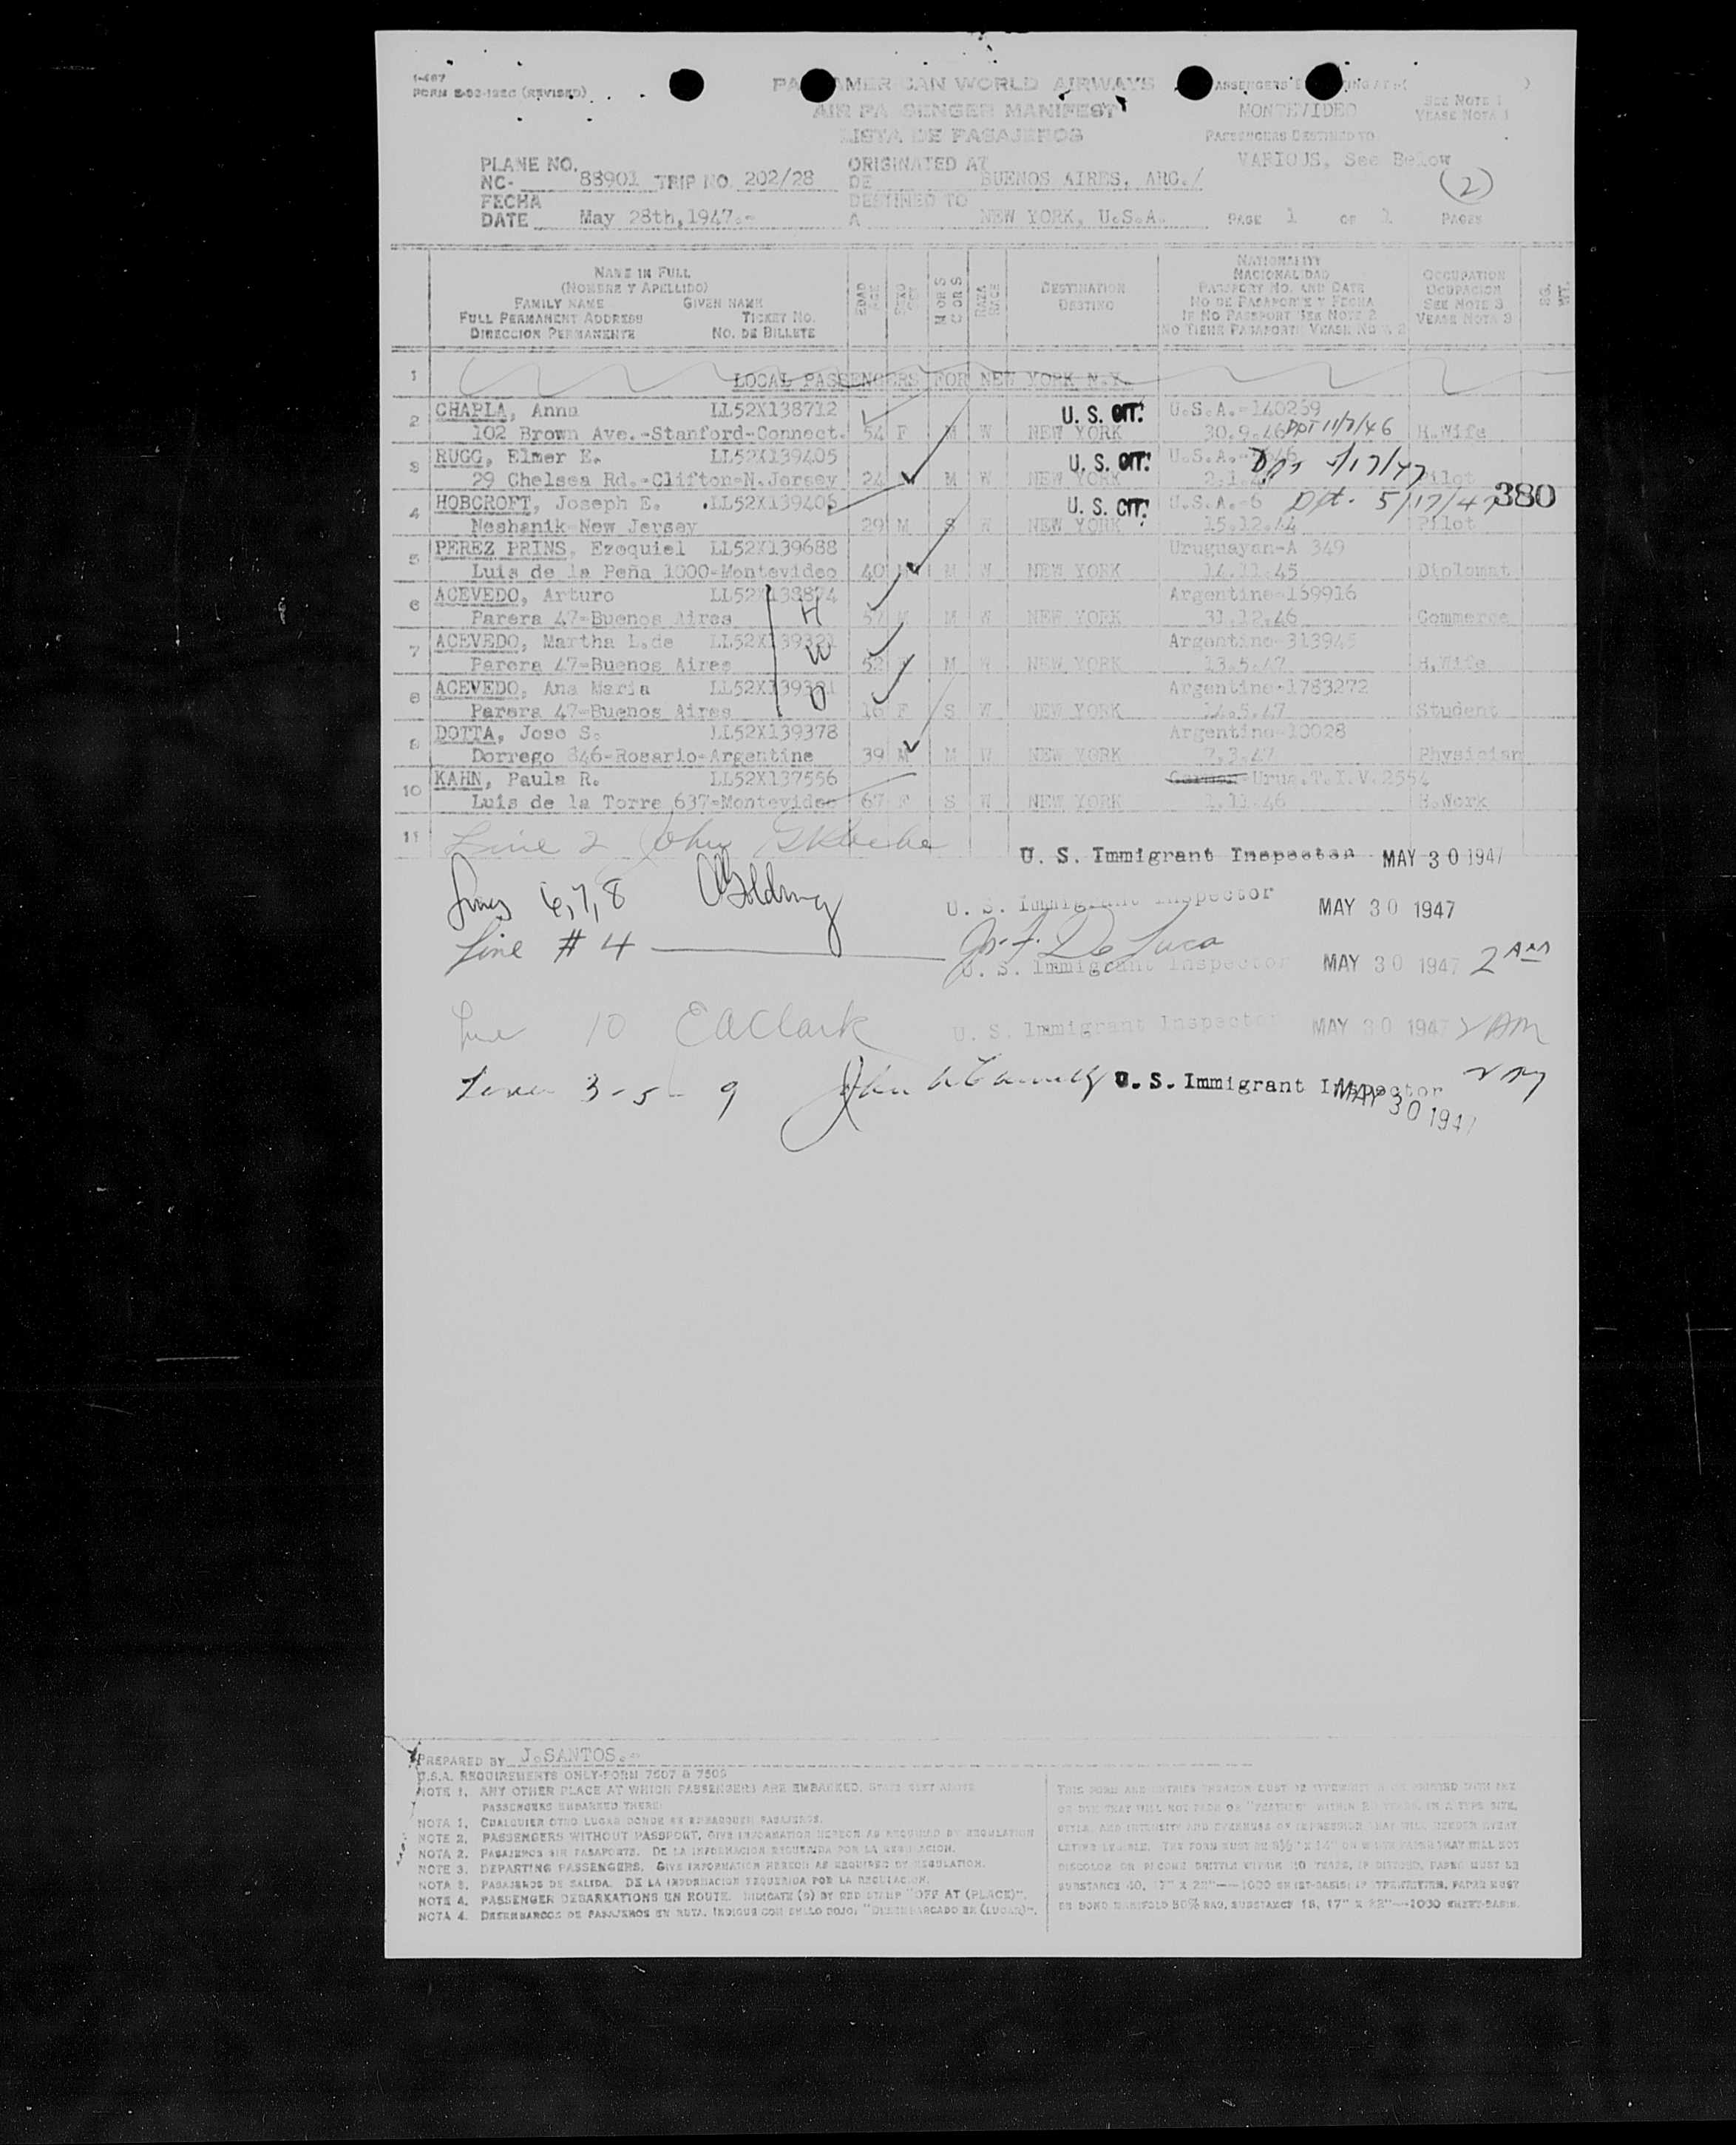 I-467
FORM (REVISED)
PA AMER CAN WORLD AIRWAYS
AIR PA SENGER MANIFEST
LISTA DE PASAJEROS
MONTEVIDEO
PASSENGERS DESTINED TO
VARIOUS, See Below
SEE NOTE 1
VEASE NOTA 1
(2)
PLANE NO.
NC- 88901 TRIP NO. 202/28
ORIGINATED AT
DE BUENOS AIRES, ARG./
FECHA
DATE May 28th,1947.-
DESTINED TO
A NEW YORK, U.S.A.
PAGE 1 OF 1 PAGES
NAME IN FULL
(NOMBRE Y APELLIDO)
FAMILY NAME GIVEN NAME
FULL PERMANENT ADDRESS TICKET NO.
DIRECCION PERMANENTE NO. DE BILLETE
EDAD AGE
SEXO SEX
M OR S
C OR S
RAZA RACE
DESTINATION
DESTINO
NATIONALITY
NACIONALIDAD
PASSPORT NO. AND DATE
NO DE PASAPORTE Y FECHA
IF NO PASSPORT SEE NOTE 2
NO TIENE PASAPORTE VEASE NOTA 2
OCCUPATION
OCUPACION
SEE NOTE 3
VEASE NOTA 3
KG. WT.
1 LOCAL PASSENGERS FOR NEW YORK N.Y.
2 CHAPLA, Anna LL52X138712 U. S. CIT. U.S.A.-140269
102 Brown Ave.-Stanford-Connect. 54 F M W NEW YORK 30.9.46 DPT 11/7/46 H.Wife
3 RUGG, Elmer E. LL52X139405 U. S. CIT. U.S.A.- Dpt 5/17/47
29 Chelsea Rd.-Clifton-N.Jersey 24 M W NEW YORK Pilot
4 HOBCROFT, Joseph E. LL52X139406 U. S. CIT. U.S.A.-6 Dpt. 5/17/47 380
Neshanik New Jersey 29 M S W NEW YORK 15.12.44 Pilot
5 PEREZ PRINS, Ezequiel LL52X139688 Uruguayan-A 349
Luis de la Peña 1000-Montevideo 40 M W NEW YORK 14.11.45 Diplomat
6 ACEVEDO, Arturo LL52X138874 H Argentine-159916
Parera 47-Buenos Aires 57 M M W NEW YORK 31.12.46 Commerce
7 ACEVEDO, Martha L.de LL52X139321 W Argentine-313945
Parera 47-Buenos Aires 52 F M W NEW YORK 13.5.47 H.Wife
8 ACEVEDO, Ana Maria LL52X139321 D Argentine-1783272
Parera 47-Buenos Aires 16 F S W NEW YORK 14.5.47 Student
9 DOTTA, Jose S. LL52X139378 Argentine-10028
Dorrego 846-Rosario-Argentine 39 M M W NEW YORK 7.3.47 Physician
10 KAHN, Paula R. LL52X137556 German-Urug.T.I.V.2554
Luis de la Torre 637-Montevideo 67 F S W NEW YORK 1.11.46 H.Work
11 Line 2 John
U. S. Immigrant Inspector MAY 30 1947
Lines 6,7,8 Golding U. S. Immigrant Inspector MAY 30 1947
Line # 4 De Luca
U. S. Immigrant Inspector MAY 30 1947 2 AM
Line 10 E A Clark U. S. Immigrant Inspector MAY 30 1947 2 AM
Lines 3-5-9 John U. S. Immigrant Inspector
MAY 30 1947
PREPARED BY J.SANTOS.-
U.S.A. REQUIREMENTS ONLY-FORM 7507 & 7509
NOTE 1. ANY OTHER PLACE AT WHICH PASSENGERS ARE EMBARKED.
PASSENGERS EMBARKED THERE
NOTA 1. CUALQUIER OTRO LUGAR DONDE SE EMBARQUEN PASAJEROS.
NOTE 2. PASSENGERS WITHOUT PASSPORT, GIVE INFORMATION HEREON AS REQUIRED BY REGULATION
NOTA 2. PASAJEROS SIN PASAPORTE. DE LA INFORMACION REQUERIDA POR LA REGULACION.
NOTE 3. DEPARTING PASSENGERS. GIVE INFORMATION HEREON AS REQUIRED BY REGULATION.
NOTA 3. PASAJEROS DE SALIDA. DE LA INFORMACION REQUERIDA POR LA REGULACION.
NOTE 4. PASSENGER DEBARKATIONS EN ROUTE. INDICATE (D) BY RED STAMP "OFF AT (PLACE)".
NOTA 4. DESEMBARCOS DE PASAJEROS EN RUTA. INDIQUE CON SELLO ROJO: "DESEMBARCADO EN (LUGAR)".
THIS FORM AND ENTRIES THEREON MUST BE TYPEWRITTEN OR PRINTED WITH INK
OR DYE THAT WILL NOT FADE OR "FEATHER" WITHIN 20 YEARS, IN A TYPE SIZE,
STYLE, AND INTENSITY AND EVENNESS OF IMPRESSION THAT WILL RENDER EVERY
LETTER LEGIBLE. THE FORM MUST BE 8½" X 14" ON WHITE PAPER THAT WILL NOT
DISCOLOR OR BECOME BRITTLE WITHIN 20 YEARS. IF DITTOED, PAPER MUST BE
SUBSTANCE 40, 17" X 22"—1000 SHEET-BASIS; IF TYPEWRITTEN, PAPER MUST
BE BOND MANIFOLD 50% RAG, SUBSTANCE 18, 17" X 22"—1000 SHEET-BASIS.